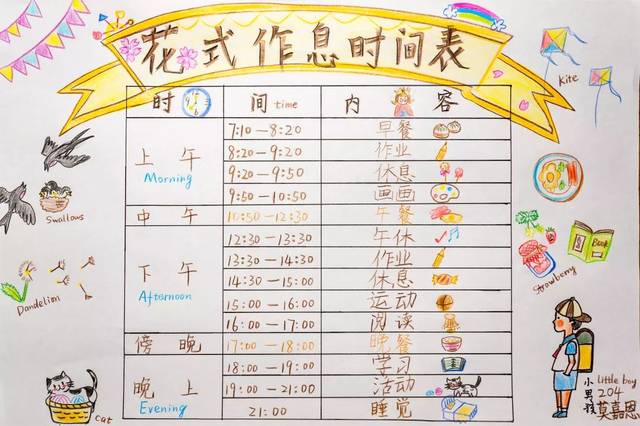 花式作息时间表
时 间 time 内 容
上午 Morning
7:10—8:20 早餐
8:20—9:20 作业
9:20—9:50 休息
9:50—10:50 画画
中午 10:50—12:30 午餐
下午 Afternoon
12:30—13:30 午休
13:30—14:30 作业
14:30—15:00 休息
15:00—16:00 运动
16:00—17:00 阅读
傍晚 17:00—18:00 晚餐
晚上 Evening
18:00—19:00 学习
19:00—21:00 活动
21:00 睡觉
Swallows
Dandelion
cat
Kite
Book
Strawberry
小男孩
little boy
204
莫嘉恩